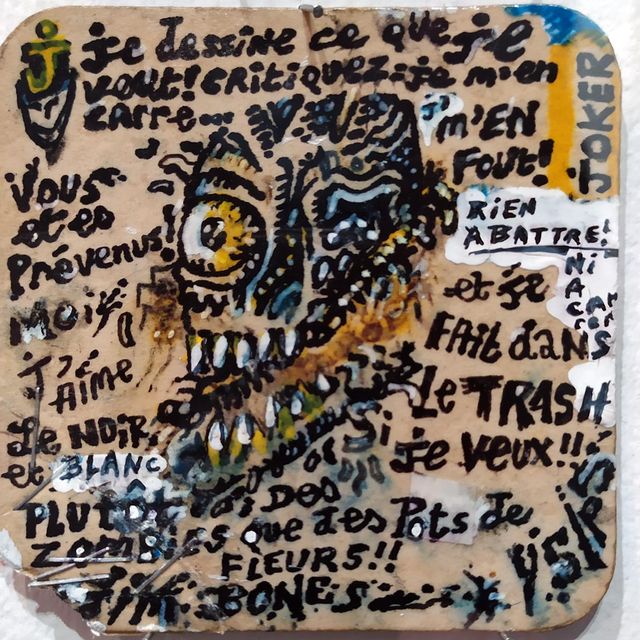 je dessine ce que je
veut! CRITiQUEZ: je m'en
carre...
j'm'EN
Fout!
JOKER
Vous
etes
Prévenus!
Moi
J'
AiME
Le NOIR
et BLANC
RIEN
A BATTRE!
Ni
A
et je
FAit daNS
Le TRASH
Si je veux!!
PLUTÔt DES
ZOMBiES que des Pots de
FLEURS!!
BONES